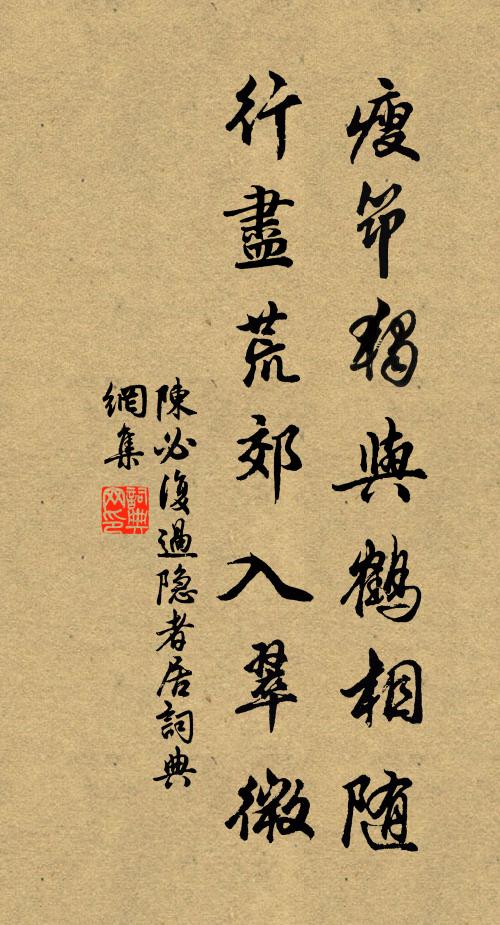 瘦筇獨與鶴相随
行盡荒郊入翠微
陳必復過隐者居詞典
網集
詞典
网印